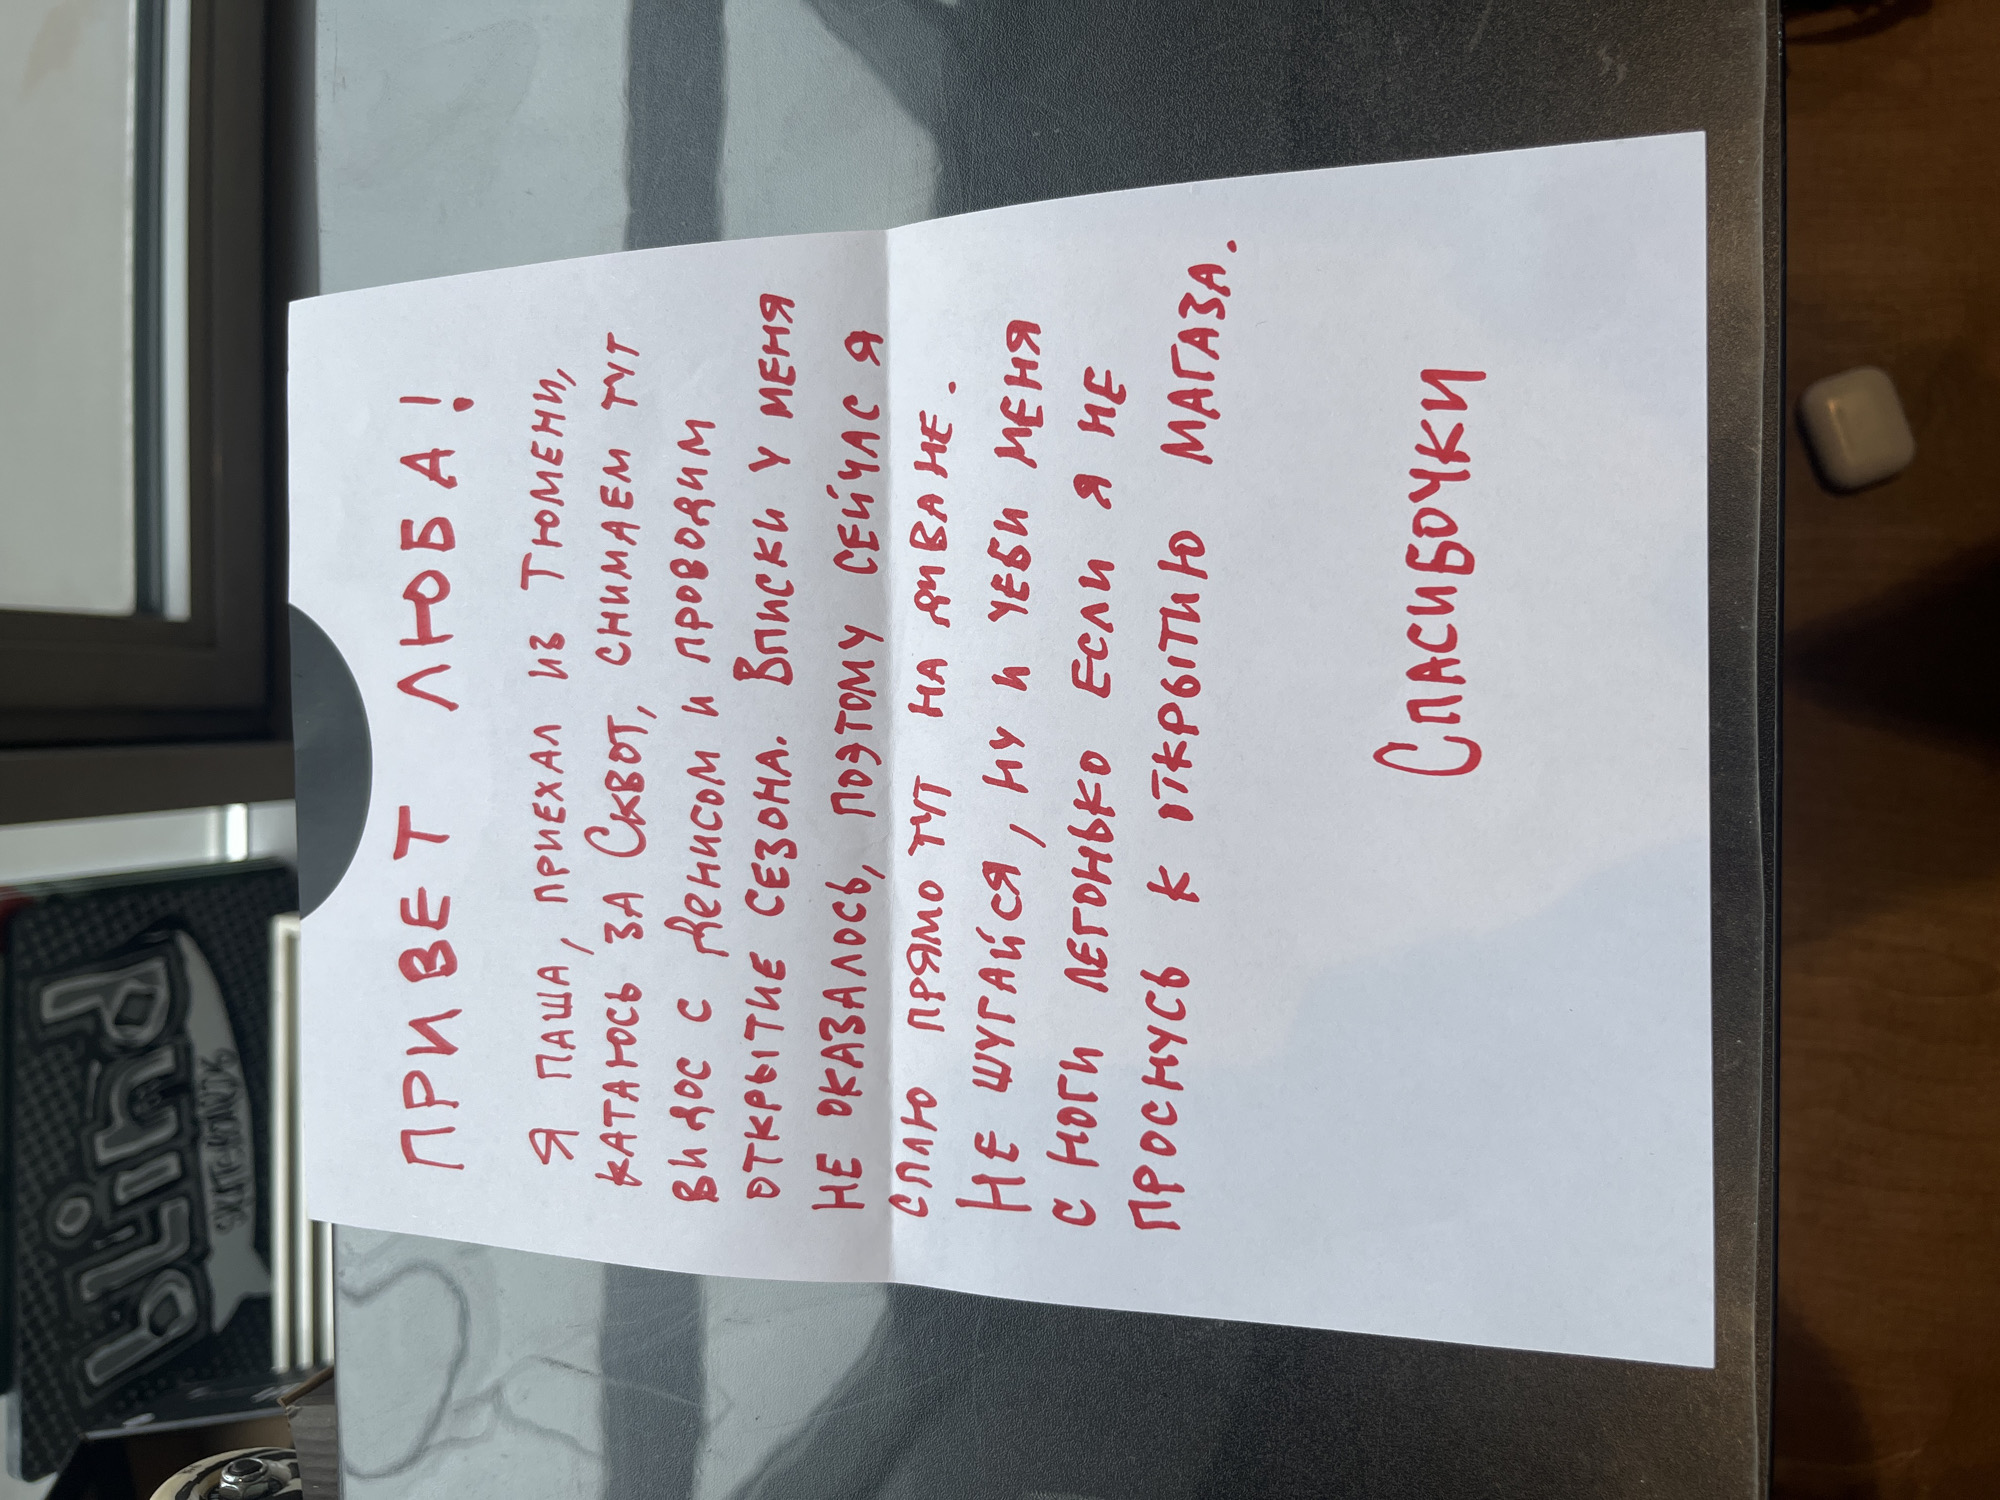 ПРИВЕТ ЛЮБА!
Я ПАША, ПРИЕХАЛ ИЗ ТЮМЕНИ,
КАТАЮСЬ ЗА СКВОТ, СНИМАЕМ ТУТ
ВИДОС С ДЕНИСОМ И ПРОВОДИМ
ОТКРЫТИЕ СЕЗОНА. ВПИСКИ У МЕНЯ
НЕ ОКАЗАЛОСЬ, ПОЭТОМУ СЕЙЧАС Я
СПЛЮ ПРЯМО ТУТ НА ДИВАНЕ.
НЕ ШУГАЙСЯ, НУ И УЕБИ МЕНЯ
С НОГИ ЛЕГОНЬКО ЕСЛИ Я НЕ
ПРОСНУСЬ К ОТКРЫТИЮ МАГАЗА.
СПАСИБОЧКИ
SKATEBOARDS